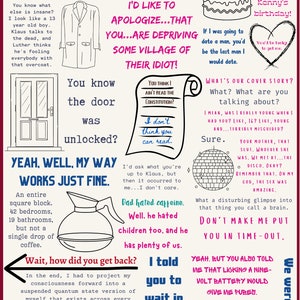 You know
what else is
insane?
I look like a
13 year old
boy. Klaus
talks to the
dead, and
Luther thinks
he's fooling
everybody with
that overcoat.
I'D LIKE TO
APOLOGIZE...THAT
YOU...ARE DEPRIVING
SOME VILLAGE OF
THEIR IDIOT!
Kenny's
birthday!
If I was going to
date a man, you'd
be the last man
I would date.
You'd be lucky
to get me.
You know
the door
was
unlocked?
YOU THINK I
AIN'T READ THE
CONSTITUTION?
I don't
think you
can read.
WHAT'S OUR COVER STORY?
WHAT? WHAT ARE YOU
TALKING ABOUT?
I MEAN, WAS I REALLY YOUNG WHEN I
HAD YOU? LIKE, 16? LIKE, YOUNG
AND...TERRIBLY MISGUIDED?
SURE.
YOUR MOTHER, THAT
SLUT. WHOEVER SHE
WAS. WE MET AT...THE
DISCO. OKAY?
REMEMBER THAT. OH MY
GOD, THE SEX WAS
AMAZING.
What a disturbing glimpse into
that thing you call a brain.
DON'T MAKE ME PUT
YOU IN TIME-OUT.
YEAH. WELL, MY WAY
WORKS JUST FINE.
I'd ask what you're
up to Klaus, but
then it occurred to
me...I don't care.
An entire
square block.
42 bedrooms,
19 bathrooms,
but not a
single drop of
coffee.
Dad hated caffeine.
Well, he hated
children too, and he
has plenty of us.
Wait, how did you get back?
In the end, I had to project my
consciousness forward into a
suspended quantum state version of
myself that exists across every
I told
you to
wait in
YEAH. BUT YOU ALSO TOLD
ME THAT LICKING A NINE-
VOLT BATTERY WOULD
GIVE ME PUBES.
We were